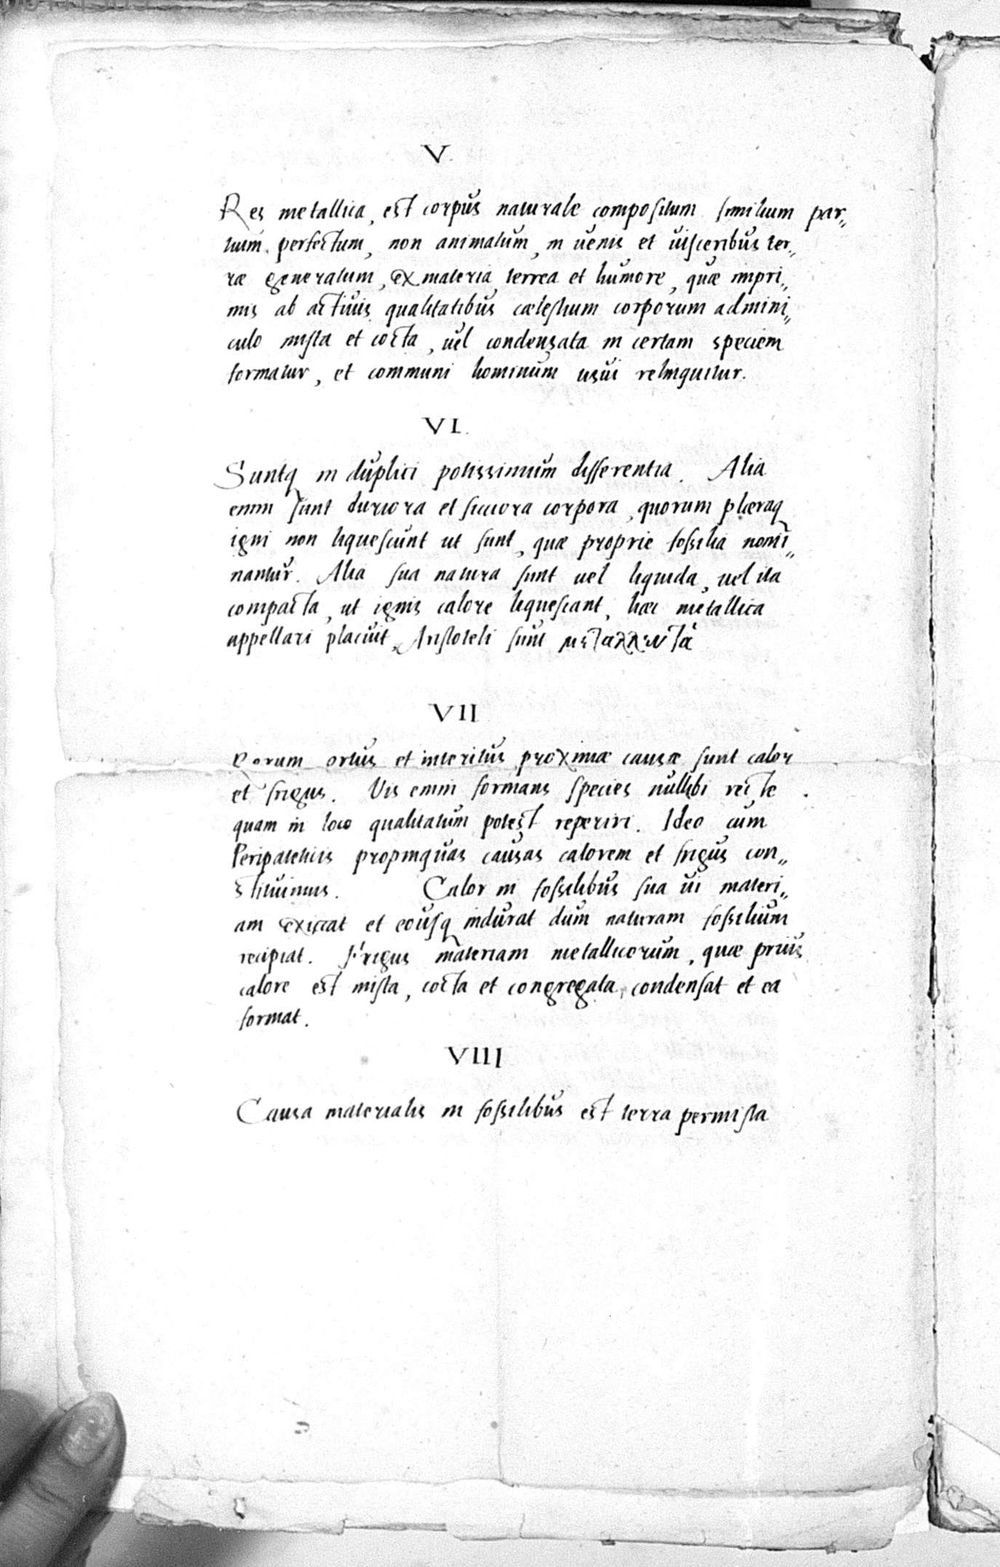 V.
Res metallica, est corpus naturale compositum similium par„
tium perfectum, non animatum, in uenis et uisceribus ter„
ræ generatum, ex materia terrea et humore, quæ impri„
mis ab actiuis qualitatibus cælestium corporum admini„
culo mista et cocta, uel condensata in certam speciem
formatur, et communi hominum usui relinquitur.
VI.
Suntq in duplici potissimum differentia. Alia
enim sunt duriora et sicciora corpora, quorum pleraq
igni non liquescunt ut sunt, quæ proprie fossilia nomi„
nantur. Alia sua natura sunt uel liquida, uel ita
compacta, ut ignis calore liquescant, hæc metallica
appellari placuit, Aristoteli sunt μεταλλευτὰ
VII
Horum ortus et interitus proximæ causæ sunt calor
et frigus. Vis enim formans species nullibi recte
quam in loco qualitatum potest reperiri. Ideo cum
Peripateticis propinquas causas calorem et frigus con„
stituimus. Calor in fossilibus sua ui materi„
am exiccat et eousq indurat dum naturam fossilium
recipiat. Frigus materiam metallicorum, quæ prius
calore est mista, cocta et congregata, condensat et ea
format.
VIII
Causa materialis in fossilibus est terra permista